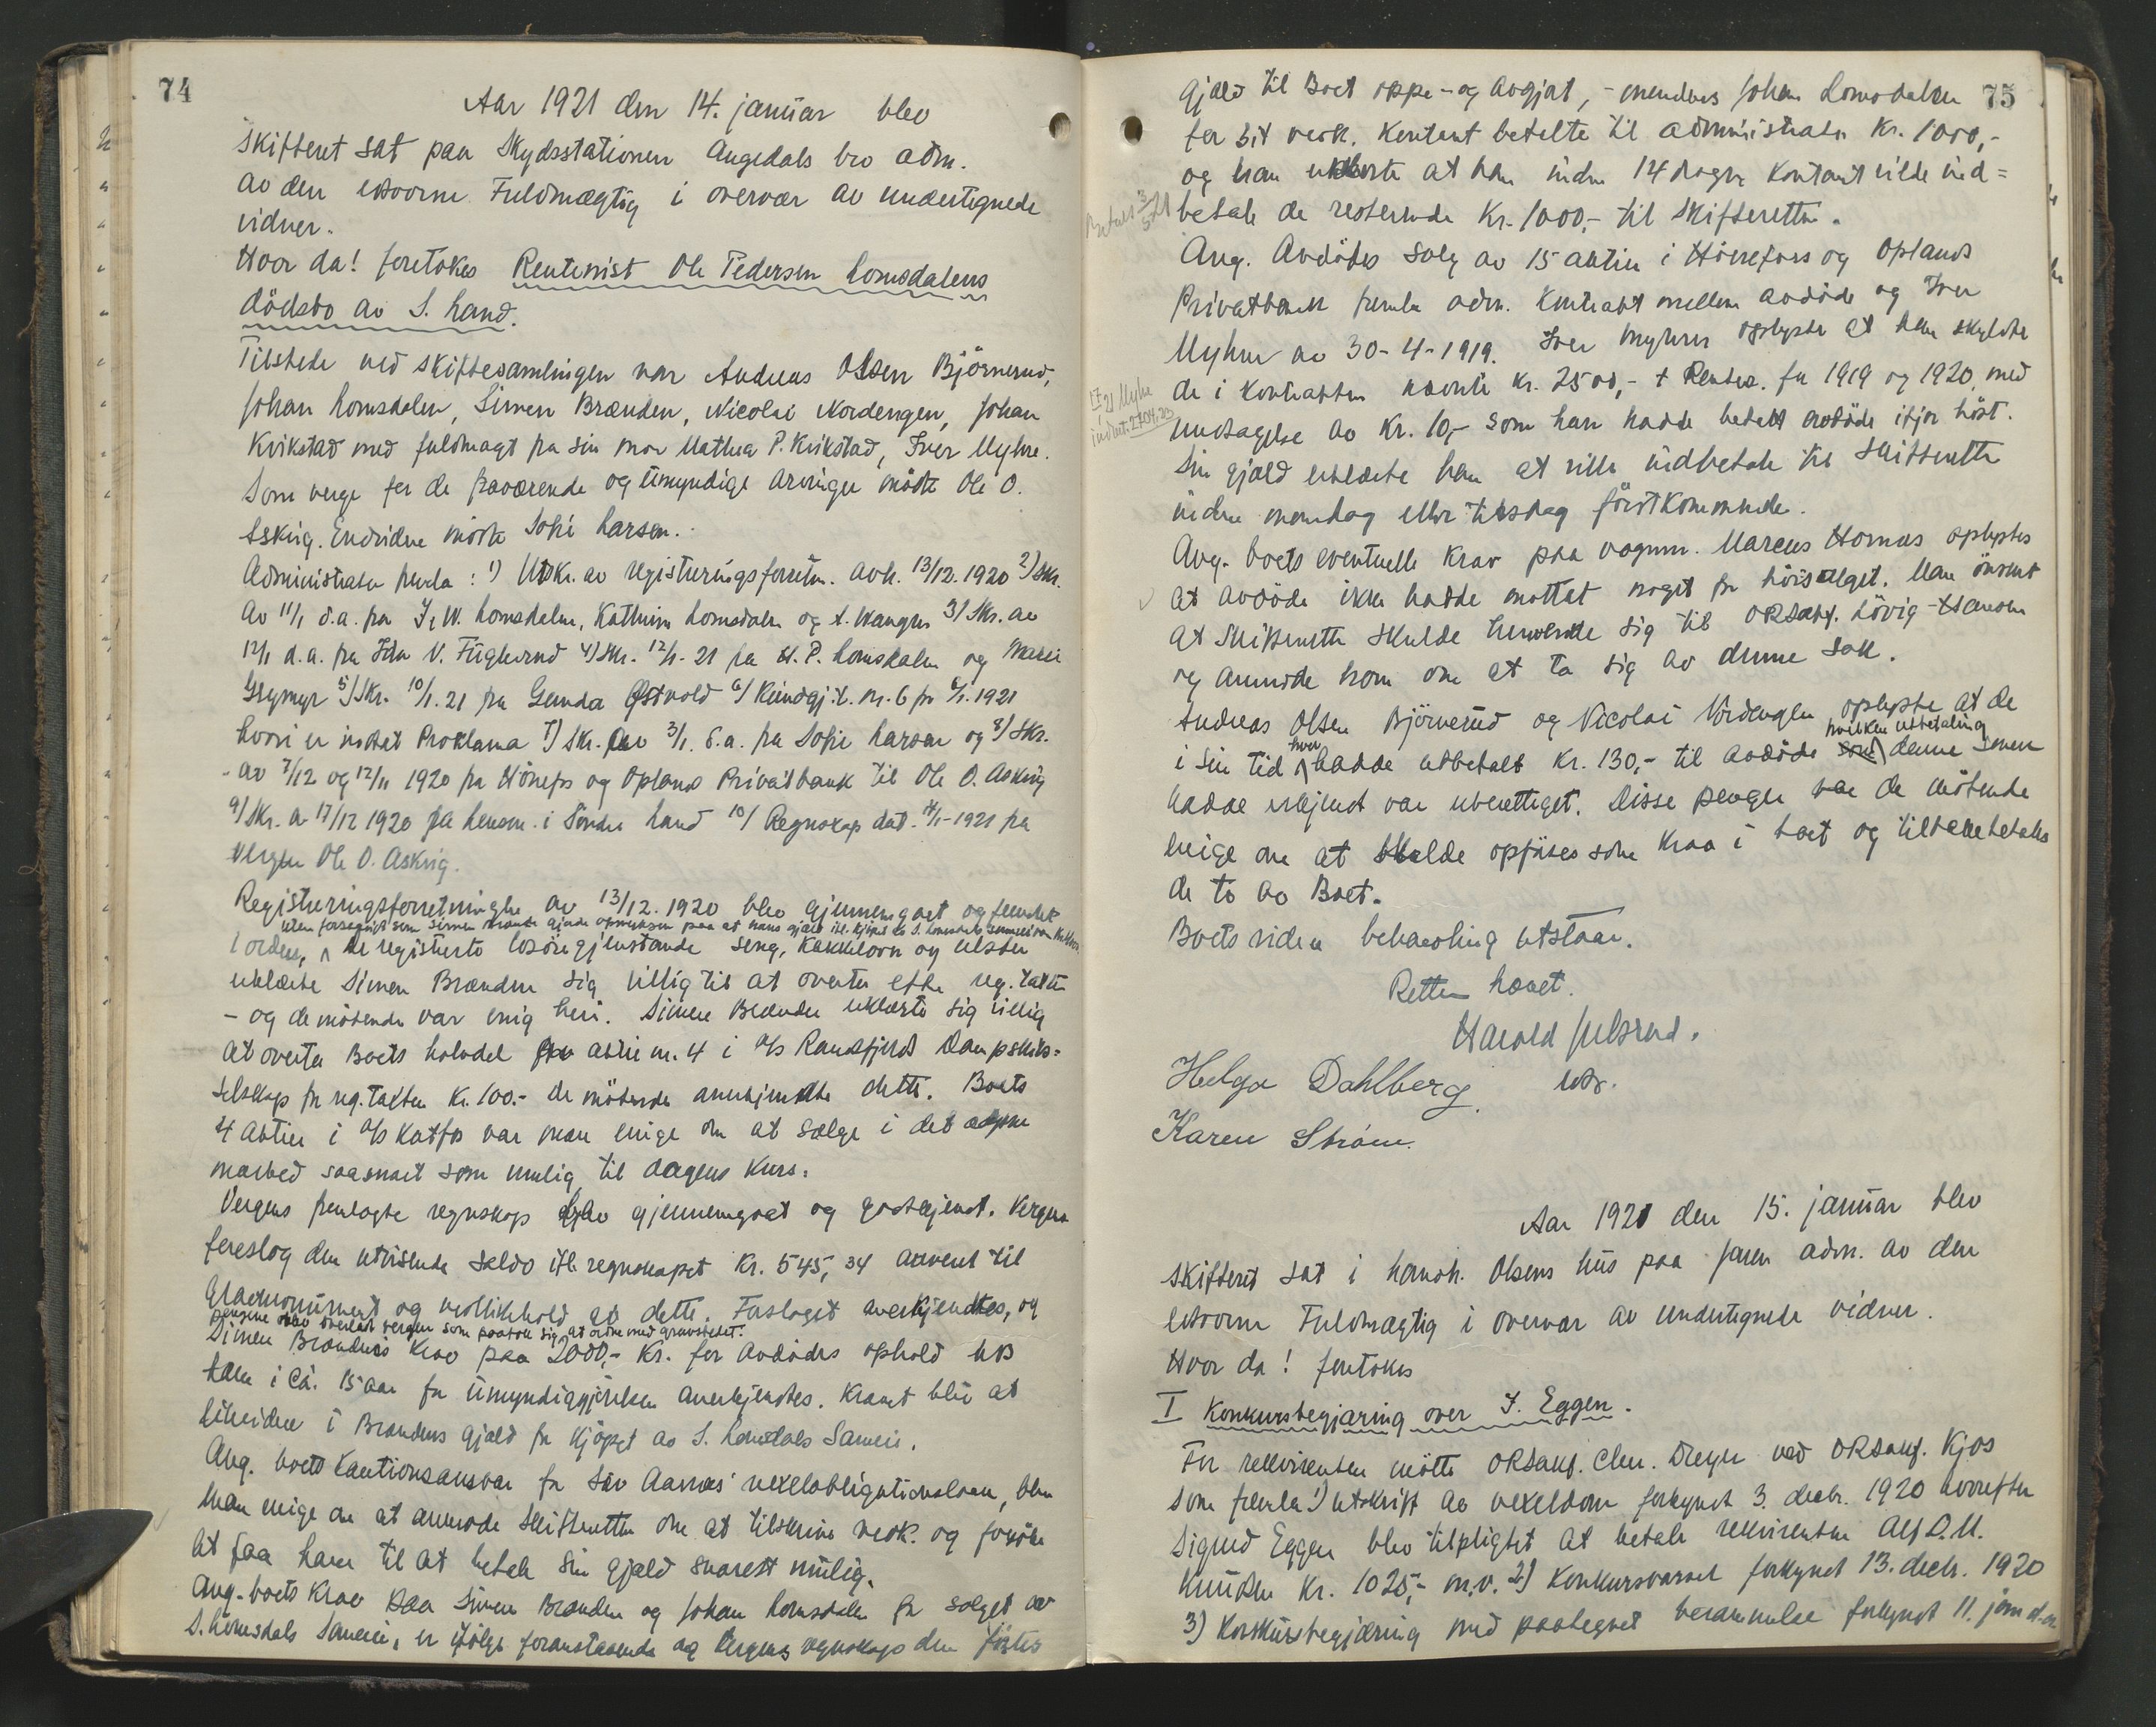 74
Aar 1921 den 14. januar blev
skifteret sat paa Skydsstationen Augedals bro adm.
av den edsvorne Fuldmægtig i overvær av undertegnede
vidner.
Hvor da! foretokes Rentenist Ole Pedersen Lomsdalens
dödsbo av S. Land.
Tilstede ved skiftesamlingen var Andreas Olsen Björnerud,
Johan Lomsdalen, Simen Brænden, Nicolai Nordengen, Johan
Kvikstad med fuldmagt fra sin mor Mathea P. Kvikstad, Iver Myhre.
Som verge for de fraværende og umyndige arvinger mötte Ole O.
Askvig. Endvidere mötte Sofie Larsen.
Administrator fremla: 1) Utskr. av registreringsforretn. avh. 13/12. 1920 2) Skr.
av 11/1 d.a. fra J. W. Lomsdalen, Kathrine Lomsdalen og A. Wangen 3) Skr. av
12/1 d.a. fra Ida V. Fuglerud 4) Skr. 12/1-21 fra H. P. Lomsdalen og Marie
5) Skr. 10/1.21 fra Gunda Østvold 6) Kundgj.t. nr. 6 for 8/1. 1921
hvori er indtat Proklama 7) Skr. av 3/1. d.a. fra Sofie Larsen og 8) Skr.
av 7/12 og 12/11 1920 fra Hönefos og Opland Privatbank til Ole O. Askvig
9) Skr. av 17/12 1920 fra lensm. i Söndre Land 10) Regnskap dat. 14/1-1921 fra
vergen Ole O. Askvig.
Registreringsforretningen av 13/12. 1920 blev gjennemgaat og fundet
uten forsaavidt som Simen Brænden gjorde opmerksom paa at hans gjæld iflg. kjöpet av S. Lomsdals sameie var
i orden, ^ De registrerte lösöregjenstande seng, kakkelovn og ulster
erklærte Simen Brænden sig villig til at overta efter reg. takst
- og de mötende var enig heri. Simen Brænden erklærte sig villig
at overta Boets halvdel av aktie nr. 4 i A/S Randsfjords Dampskibs=
selskap for reg. taksten kr. 100.- De mötende anerkjendte dette. Boets
4 Aktier i A/S Katfos var man enige om at sælge i det aapne
marked saasnart som mulig til dagens kurs.
Vergens fremlagte regnskap blev gjennemgaat og godkjendt. Vergen
foreslog den utvisende saldo ifl. regnskapet Kr. 545,34 anvendt til
Gravmonument og vedlikehold av dette. Forslaget anerkjendtes, og
pengene blev overlatt vergen som paatok sig at ordne med gravstedet.
Simen Brændens krav paa 2000,- Kr. for avdödes ophold hos
ham i ca. 15 aar för umyndiggjörelsen anerkjendtes. Kravet blir at
likvidere i Brændens gjæld for kjöpet av S. Lomsdals Sameie.
Ang. boets kautionsansvar for Aarnæs' vexelobligationslaan, blev
man enige om at anmode Skifteretten om at tilskrive vedk. og forsöke
at faa ham til at betale sin gjæld snarest mulig.
Ang. boets krav paa Simen Brænden og Johan Lomsdalen for salget av
S. Lomsdals Sameie, er ifölge foranstaaende og Vergens regnskap den förstes
75
Gjæld til Boet oppe- og avgjort, - medens Johan Lomsdalen
for sit vedk. kontant betalte til administrator Kr. 1000,-
og han erklærte at han inden 14 dager kontant vilde ind=
Betalt 3/5 21
betale de resterende Kr. 1000,- til skifteretten.
Ang. Avdödes salg av 15 aktier i Hönefoss og Oplands
Privatbank fremla adm. kontrakt mellem avdöde og Iver
Myhre av 30-4-1919. Iver Myhre oplyste at han skyldte
de i kontrakten nævnte kr. 2500,- + Renter. for 1919 og 1920, med
undtagelse av Kr. 10,- som han hadde betalt avdöde ifjor höst.
Sin gjæld erklærte han at ville indbetale til Skifteretten
inden mandag eller tirsdag förstkommende.
Ang. boets eventuelle krav paa vognm. Marcus Homnes oplystes
at avdöde ikke hadde mottat noget for höisalget. Man önsket
at Skifteretten skulde henvende sig til ORSakf. Lövig-Hansen
og anmode ham om at ta sig av denne sak.
Andreas Olsen Björnerud og Nicolai Nordengen oplyste at de
i sin tid ^hver hadde utbetalt kr. 130,- til avdöde ^hvilken utbetaling denne senere
hadde erkjendt var uberettiget. Disse penger var de mötende
enige om at skulde opföres som krav i boet og tilbakebetales
de to av Boet.
Boets videre behandling utstaar.
Retten hævet.
Harald Julsrud.
Helga Dahlberg edsv.
Karen Ström.
Aar 1921 den 15. januar blev
skifteret sat i Landh. Olsens hus paa Jaren adm. av den
edsvorne Fuldmægtig i overvær av undertegnede vidner.
Hvor da! foretokes
I Konkursbegjæring over S. Eggen.
For rekvirenten mötte ORSakf. Chr. Dreyer ved ORSakf. Kjos
som fremla 1) Utskrift av vexeldom forkyndt 3. decbr. 1920 hvorefter
Sigurd Eggen blev tilpligtet at betale rekvirenten Alf D. M.
Knudsen Kr. 1025,- m.v. 2) Konkursvarsel forkyndt 13. decbr. 1920
3) Konkursbegjæring med paategnet berammelse forkyndt 11. jan d.a.